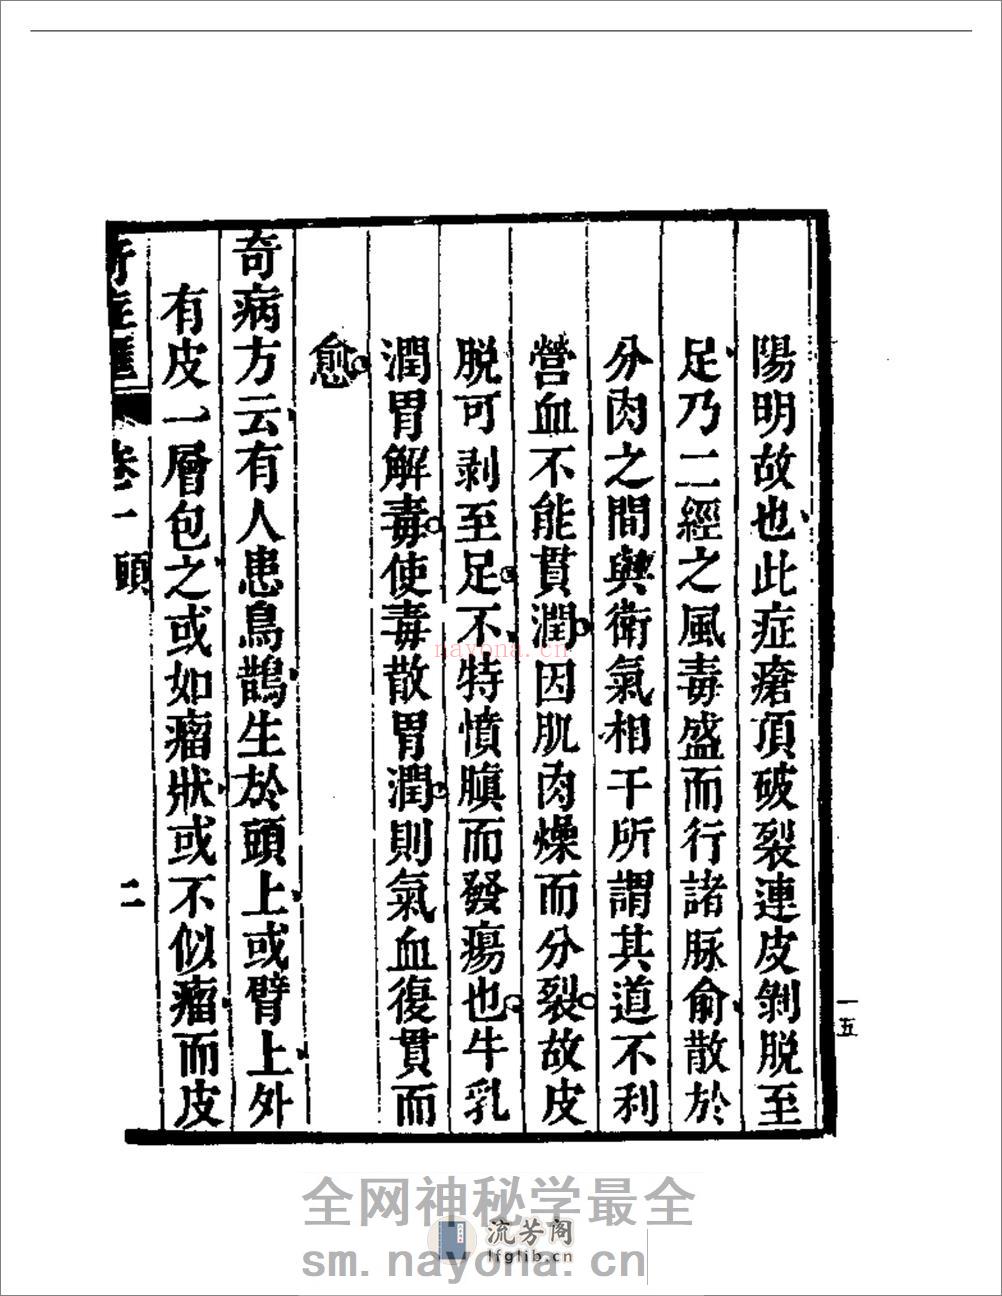 陽明故也此症瘡頂破裂連皮剝脱至
足乃二經之風毒盛而行諸脉俞散於
分肉之間與衛氣相干所謂其道不利
營血不能貫潤因肌肉燥而分裂故皮
脱可剥至足不特憤䐜而發瘍也牛乳
潤胃解毒使毒散胃潤則氣血復貫而
愈
奇病方云有人患鳥鵲生於頭上或臂上外
有皮一層包之或如瘤狀或不似瘤而皮
奇症匯 卷一 頭 二
一五
nayona.cn
全网神秘学最全
流芳阁
lfglib.cn
sm.nayona.cn